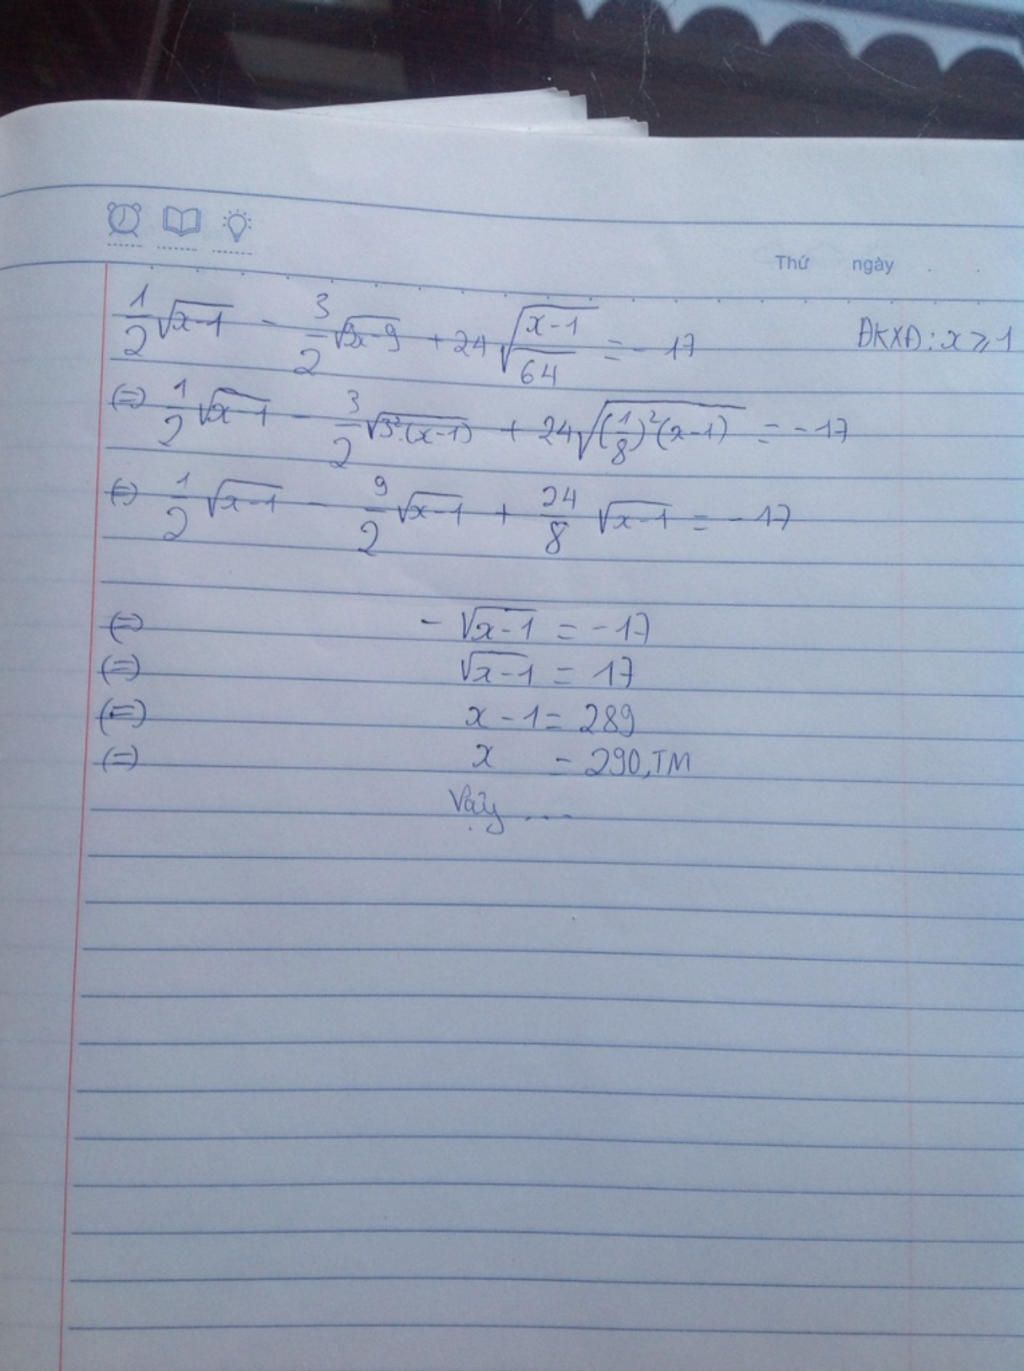 Thứ ngày
1/2 √(x-1) - 3/2 √(9x-9) + 24 √((x-1)/64) = -17 ĐKXĐ: x ⩾ 1
(=) 1/2 √(x-1) - 3/2 √(3².(x-1)) + 24 √((1/8)²(x-1)) = -17
(=) 1/2 √(x-1) - 9/2 √(x-1) + 24/8 √(x-1) = -17
(=) - √(x-1) = -17
(=) √(x-1) = 17
(=) x - 1 = 289
(=) x = 290, TM
Vậy ...